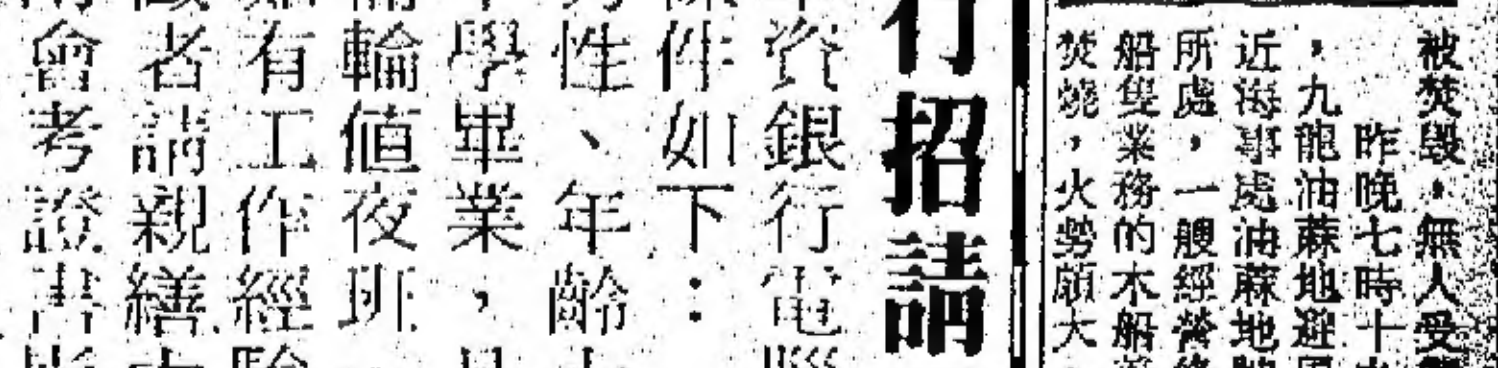 被焚毀，無人受
昨晚七時十
，九龍油蔴地避風
近海事處油蔴地
所處，一艘經營
船隻業務的木船
焚燒，火勢頗大
行招請
資銀行電腦
件如下：
性、年齡
學畢業，
輪值夜班
有工作經驗
者請親繕
會考證書影